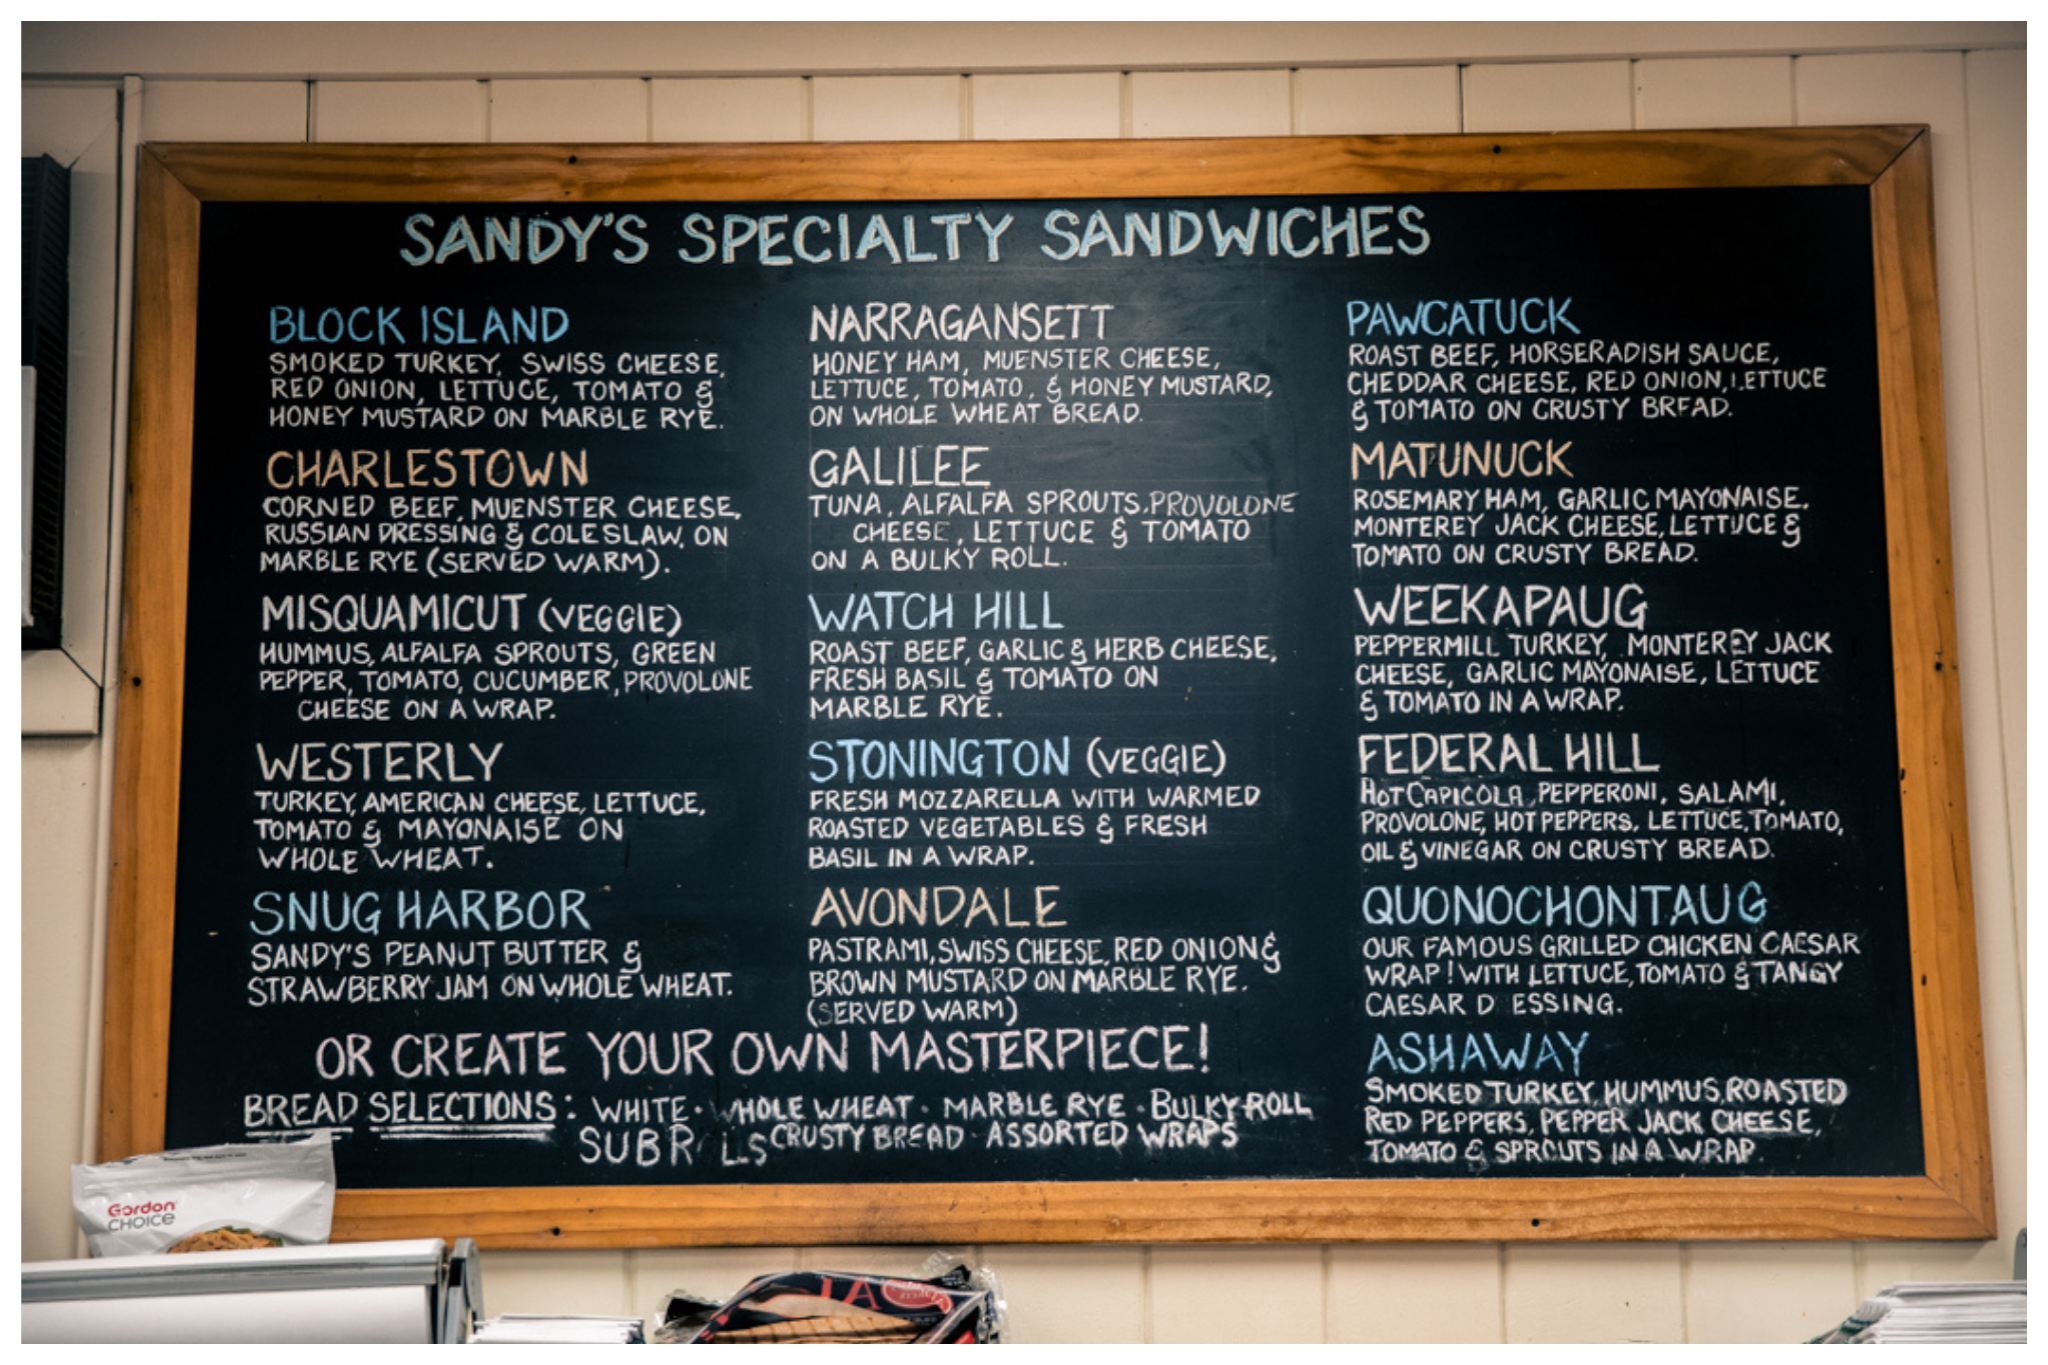 SANDY'S SPECIALTY SANDWICHES
BLOCK ISLAND
SMOKED TURKEY, SWISS CHEESE,
RED ONION, LETTUCE, TOMATO &
HONEY MUSTARD ON MARBLE RYE.
CHARLESTOWN
CORNED BEEF, MUENSTER CHEESE,
RUSSIAN DRESSING & COLESLAW, ON
MARBLE RYE (SERVED WARM).
MISQUAMICUT (VEGGIE)
HUMMUS, ALFALFA SPROUTS, GREEN
PEPPER, TOMATO, CUCUMBER, PROVOLONE
CHEESE ON A WRAP.
WESTERLY
TURKEY, AMERICAN CHEESE, LETTUCE,
TOMATO & MAYONAISE ON
WHOLE WHEAT.
SNUG HARBOR
SANDY'S PEANUT BUTTER &
STRAWBERRY JAM ON WHOLE WHEAT.
NARRAGANSETT
HONEY HAM, MUENSTER CHEESE,
LETTUCE, TOMATO, & HONEY MUSTARD,
ON WHOLE WHEAT BREAD.
GALILEE
TUNA, ALFALFA SPROUTS, PROVOLONE
CHEESE, LETTUCE & TOMATO
ON A BULKY ROLL.
WATCH HILL
ROAST BEEF, GARLIC & HERB CHEESE,
FRESH BASIL & TOMATO ON
MARBLE RYE.
STONINGTON (VEGGIE)
FRESH MOZZARELLA WITH WARMED
ROASTED VEGETABLES & FRESH
BASIL IN A WRAP.
AVONDALE
PASTRAMI, SWISS CHEESE, RED ONION &
BROWN MUSTARD ON MARBLE RYE.
(SERVED WARM)
PAWCATUCK
ROAST BEEF, HORSERADISH SAUCE,
CHEDDAR CHEESE, RED ONION, LETTUCE
& TOMATO ON CRUSTY BREAD.
MATUNUCK
ROSEMARY HAM, GARLIC MAYONAISE,
MONTEREY JACK CHEESE, LETTUCE &
TOMATO ON CRUSTY BREAD.
WEEKAPAUG
PEPPERMILL TURKEY, MONTEREY JACK
CHEESE, GARLIC MAYONAISE, LETTUCE
& TOMATO IN A WRAP.
FEDERAL HILL
HOT CAPICOLA, PEPPERONI, SALAMI,
PROVOLONE, HOT PEPPERS, LETTUCE, TOMATO,
OIL & VINEGAR ON CRUSTY BREAD.
QUONOCHONTAUG
OUR FAMOUS GRILLED CHICKEN CAESAR
WRAP! WITH LETTUCE, TOMATO & TANGY
CAESAR D ESSING.
ASHAWAY
SMOKED TURKEY, HUMMUS, ROASTED
RED PEPPERS, PEPPER JACK CHEESE,
TOMATO & SPROUTS IN A WRAP.
OR CREATE YOUR OWN MASTERPIECE!
BREAD SELECTIONS: WHITE · WHOLE WHEAT · MARBLE RYE · BULKY ROLL
SUB R LLS CRUSTY BREAD · ASSORTED WRAPS
Gordon
CHOICE